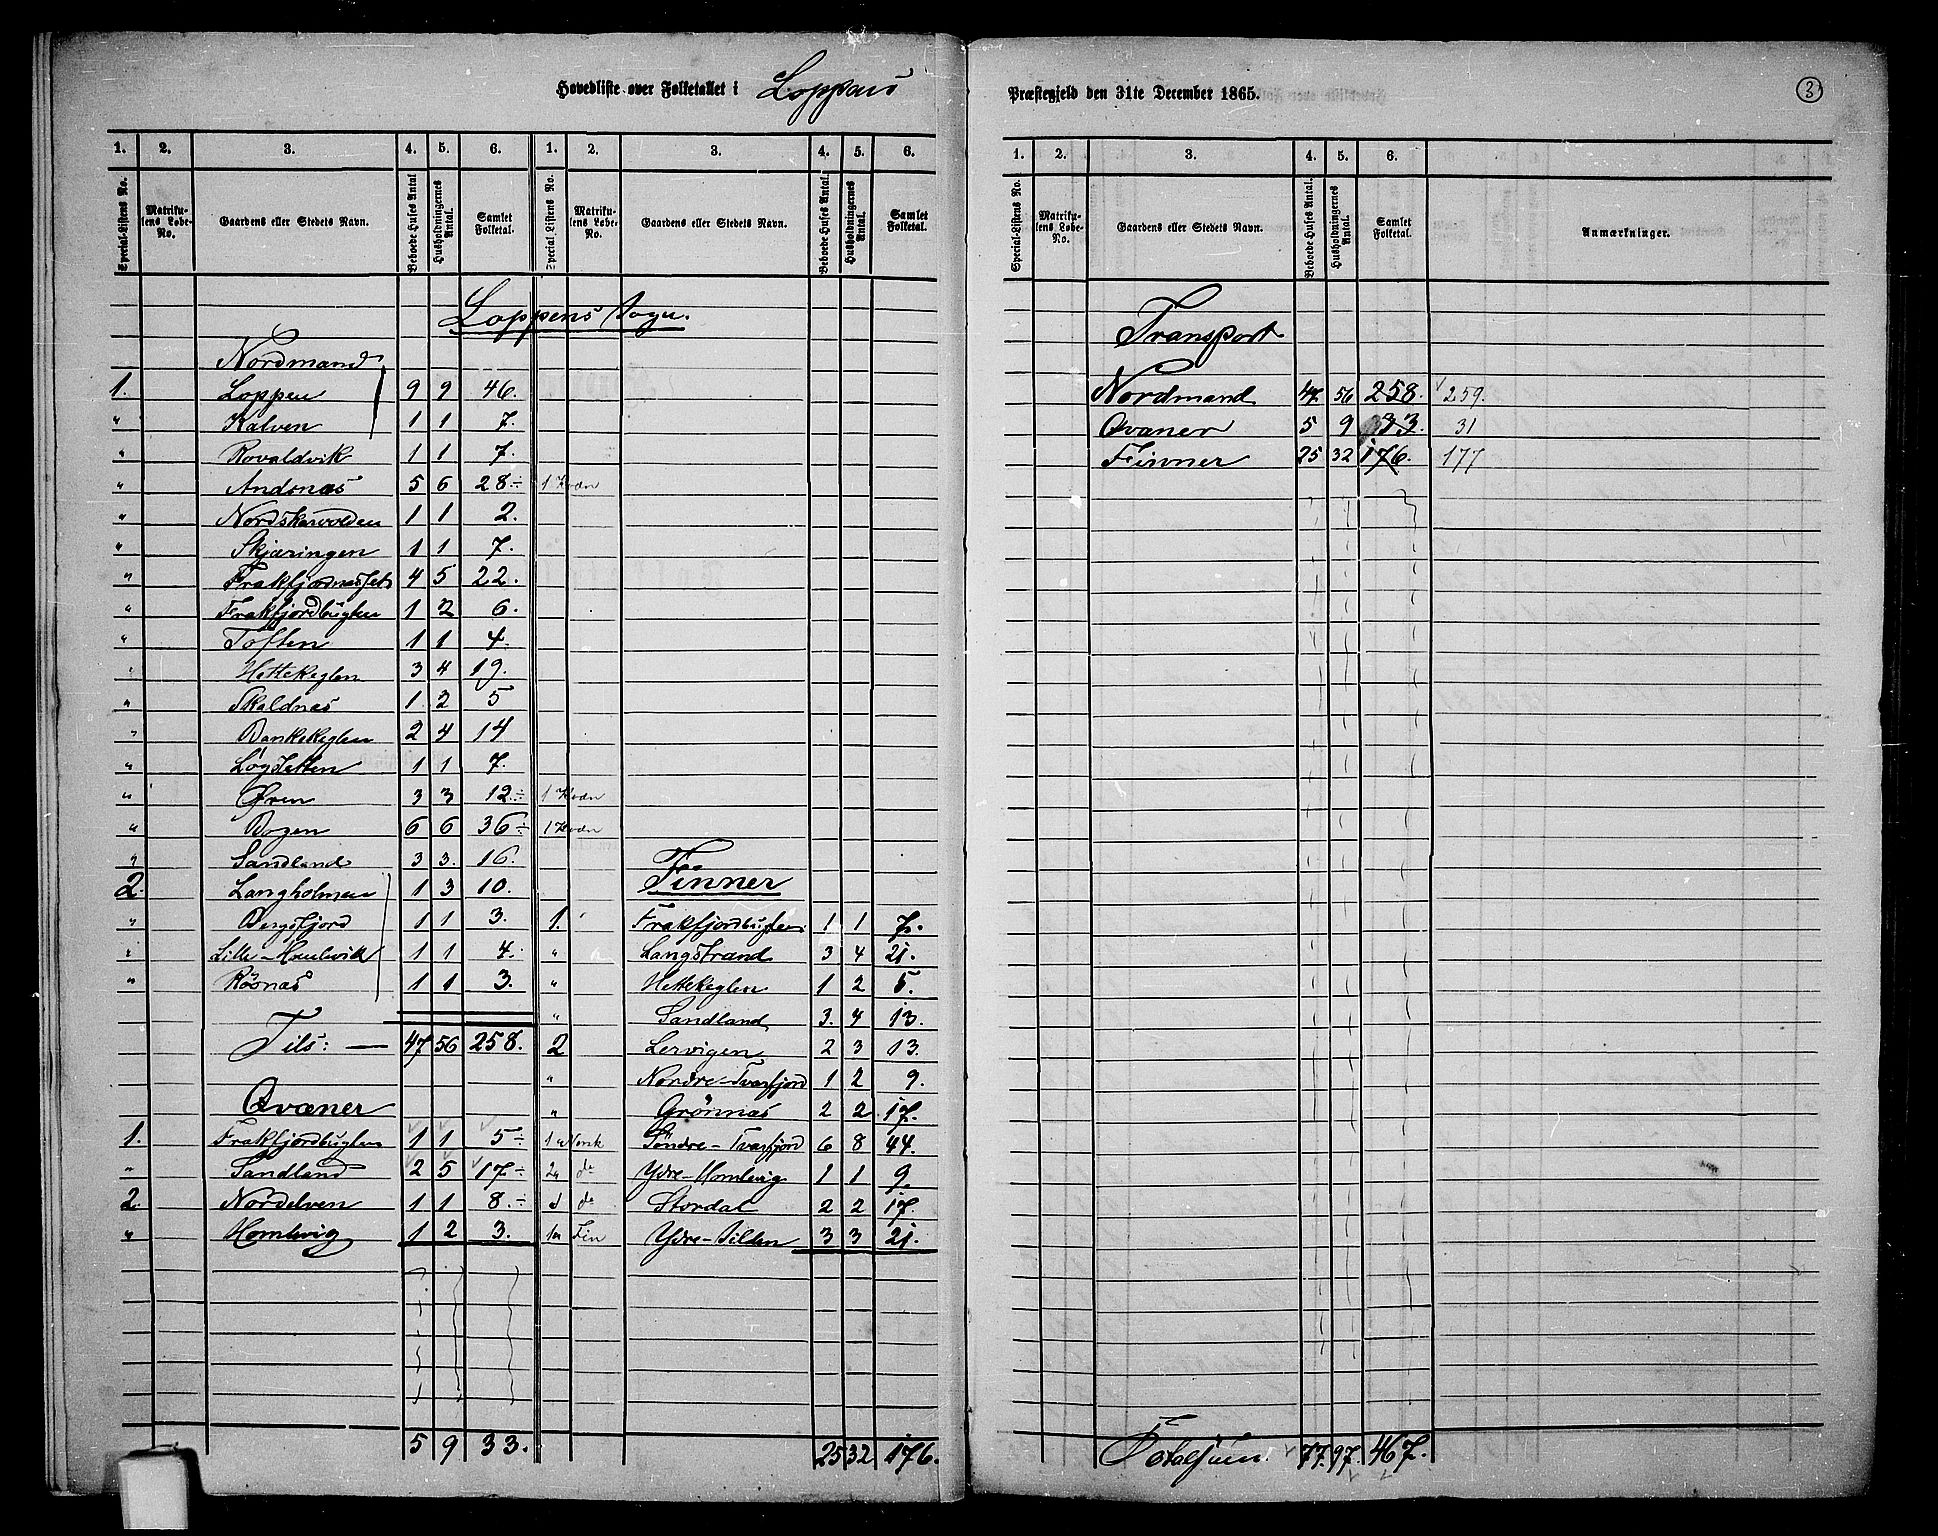 Hovedliste over Folketallet i Loppens
1. 2. 3. 4. 5. 6. 1. 2. 3. 4. 5. 6.
Special-Listens No. Matrikulens Løbe-No. Gaardens eller Stedets Navn. Beboede Huses Antal Husholdningernes Antal. Samlet Folketal. Special-Listens No. Matrikulens Løbe-No. Gaardens eller Stedets Navn. Beboede Huses Antal. Husholdningernes Antal. Samlet Folketal.
Loppens Sogn.
Nordmænd
1. Loppen 9 9 46.
" Kalven 1 1 7.
" Rovaldvik 1 1 7.
" Andsnæs 5 6 28 ÷ 1 Kvæn
" Nordskarvolden 1 1 2.
" Skjæringen 1 1 7.
" 4 5 22.
" Frakfjordbugten 1 2 6.
" Toften 1 1 4.
" Hettekeglen 3 4 19.
" Skaldnæs 1. 2 5
" Bankekeglen 2 4 14
" Løgsletten 1 1 7.
" Øren 3 3 12 ÷ 1 Kvæn
" Bogen 6 6 36 ÷ 1 Kvæn
" Sandland 3 3. 16.
2. Langholmen 1 3 10.
" Bergsfjord 1 1 3.
" 1 1 4.
" Røsnæs 1 1 3.
Tils: — 47 56 258.
Qvæner
1. Frakfjordbugten 1 1 5 ÷ 1 Norsk
" Sandland 2 5 17 ÷ 2 do
2. Nordelven 1 1 8. ÷ do
" Homlevig 1 2 3. 1 Fin
5 9 33.
Finner
1. Frakfjordbugten 1 1 7.
" Langstrand 3 4 21.
" Hettekeglen 1 2 5.
" Sandland 3. 4 13.
2 Lervigen 2 3 13.
" Nordre-Tvasfjord 1 2 9.
" Grønnæs 2 2. 17.
Søndre-Tvasfjord 6 8 44.
Ydre-Homlevig 1 1 9.
Stordal 2 2 17.
Ydre-Silden 3 3 21.
25 32 176.
Præstegjeld den 31te December 1865.
3
1. 2. 3. 4. 5. 6.
Special-Listens No. Matrikulens Løbe-No. Gaardens eller Stedets Navn. Beboede Huses Antal. Husholdningernes Antal. Samlet Folketal. Anmærkninger.
Transport
Nordmænd 47 56 258. 259.
Qvæner 5 9 33. 31
Finner 25 32 176. 177
Totalsum 77. 97. 467.